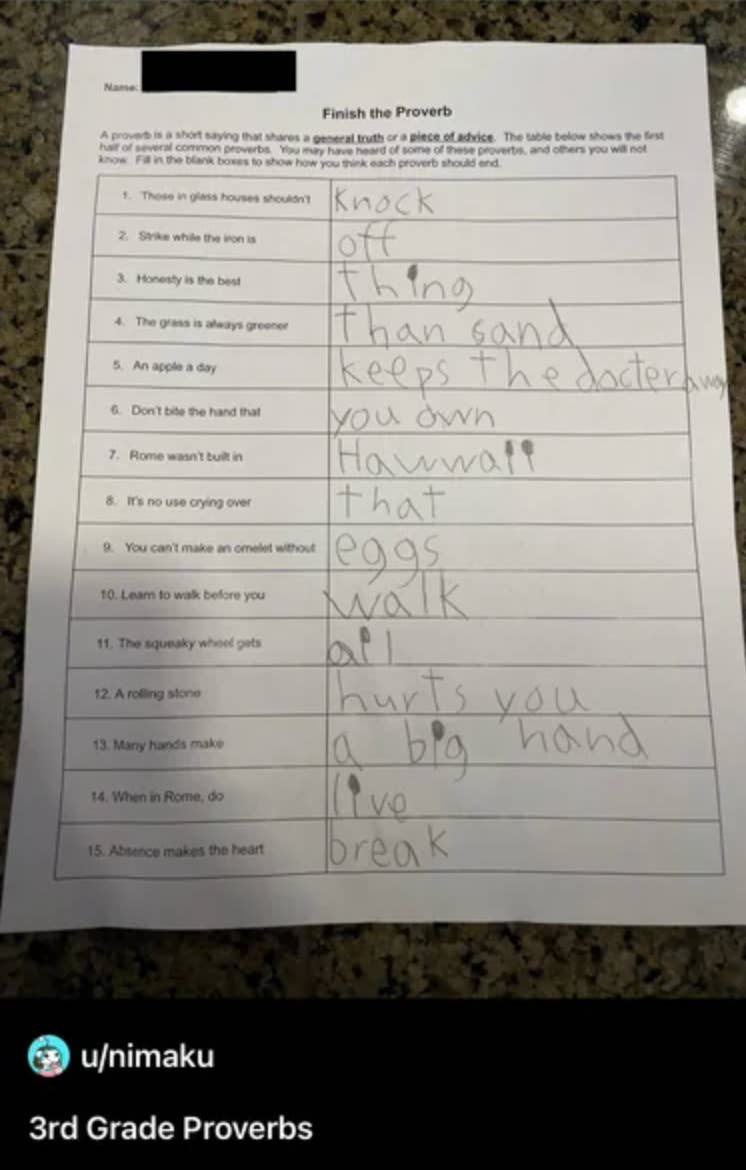 Name:
Finish the Proverb
A proverb is a short saying that shares a general truth or a piece of advice. The table below shows the first
half of several common proverbs. You may have heard of some of these proverbs, and others you will not
know. Fill in the blank boxes to show how you think each proverb should end.
1. Those in glass houses shouldn't Knock
2. Strike while the iron is off
3. Honesty is the best thing
4. The grass is always greener than sand
5. An apple a day keeps the docter away
6. Don't bite the hand that you own
7. Rome wasn't built in Hawwaii
8. It's no use crying over that
9. You can't make an omelet without eggs
10. Learn to walk before you walk
11. The squeaky wheel gets all
12. A rolling stone hurts you
13. Many hands make a big hand
14. When in Rome, do live
15. Absence makes the heart break
u/nimaku
3rd Grade Proverbs